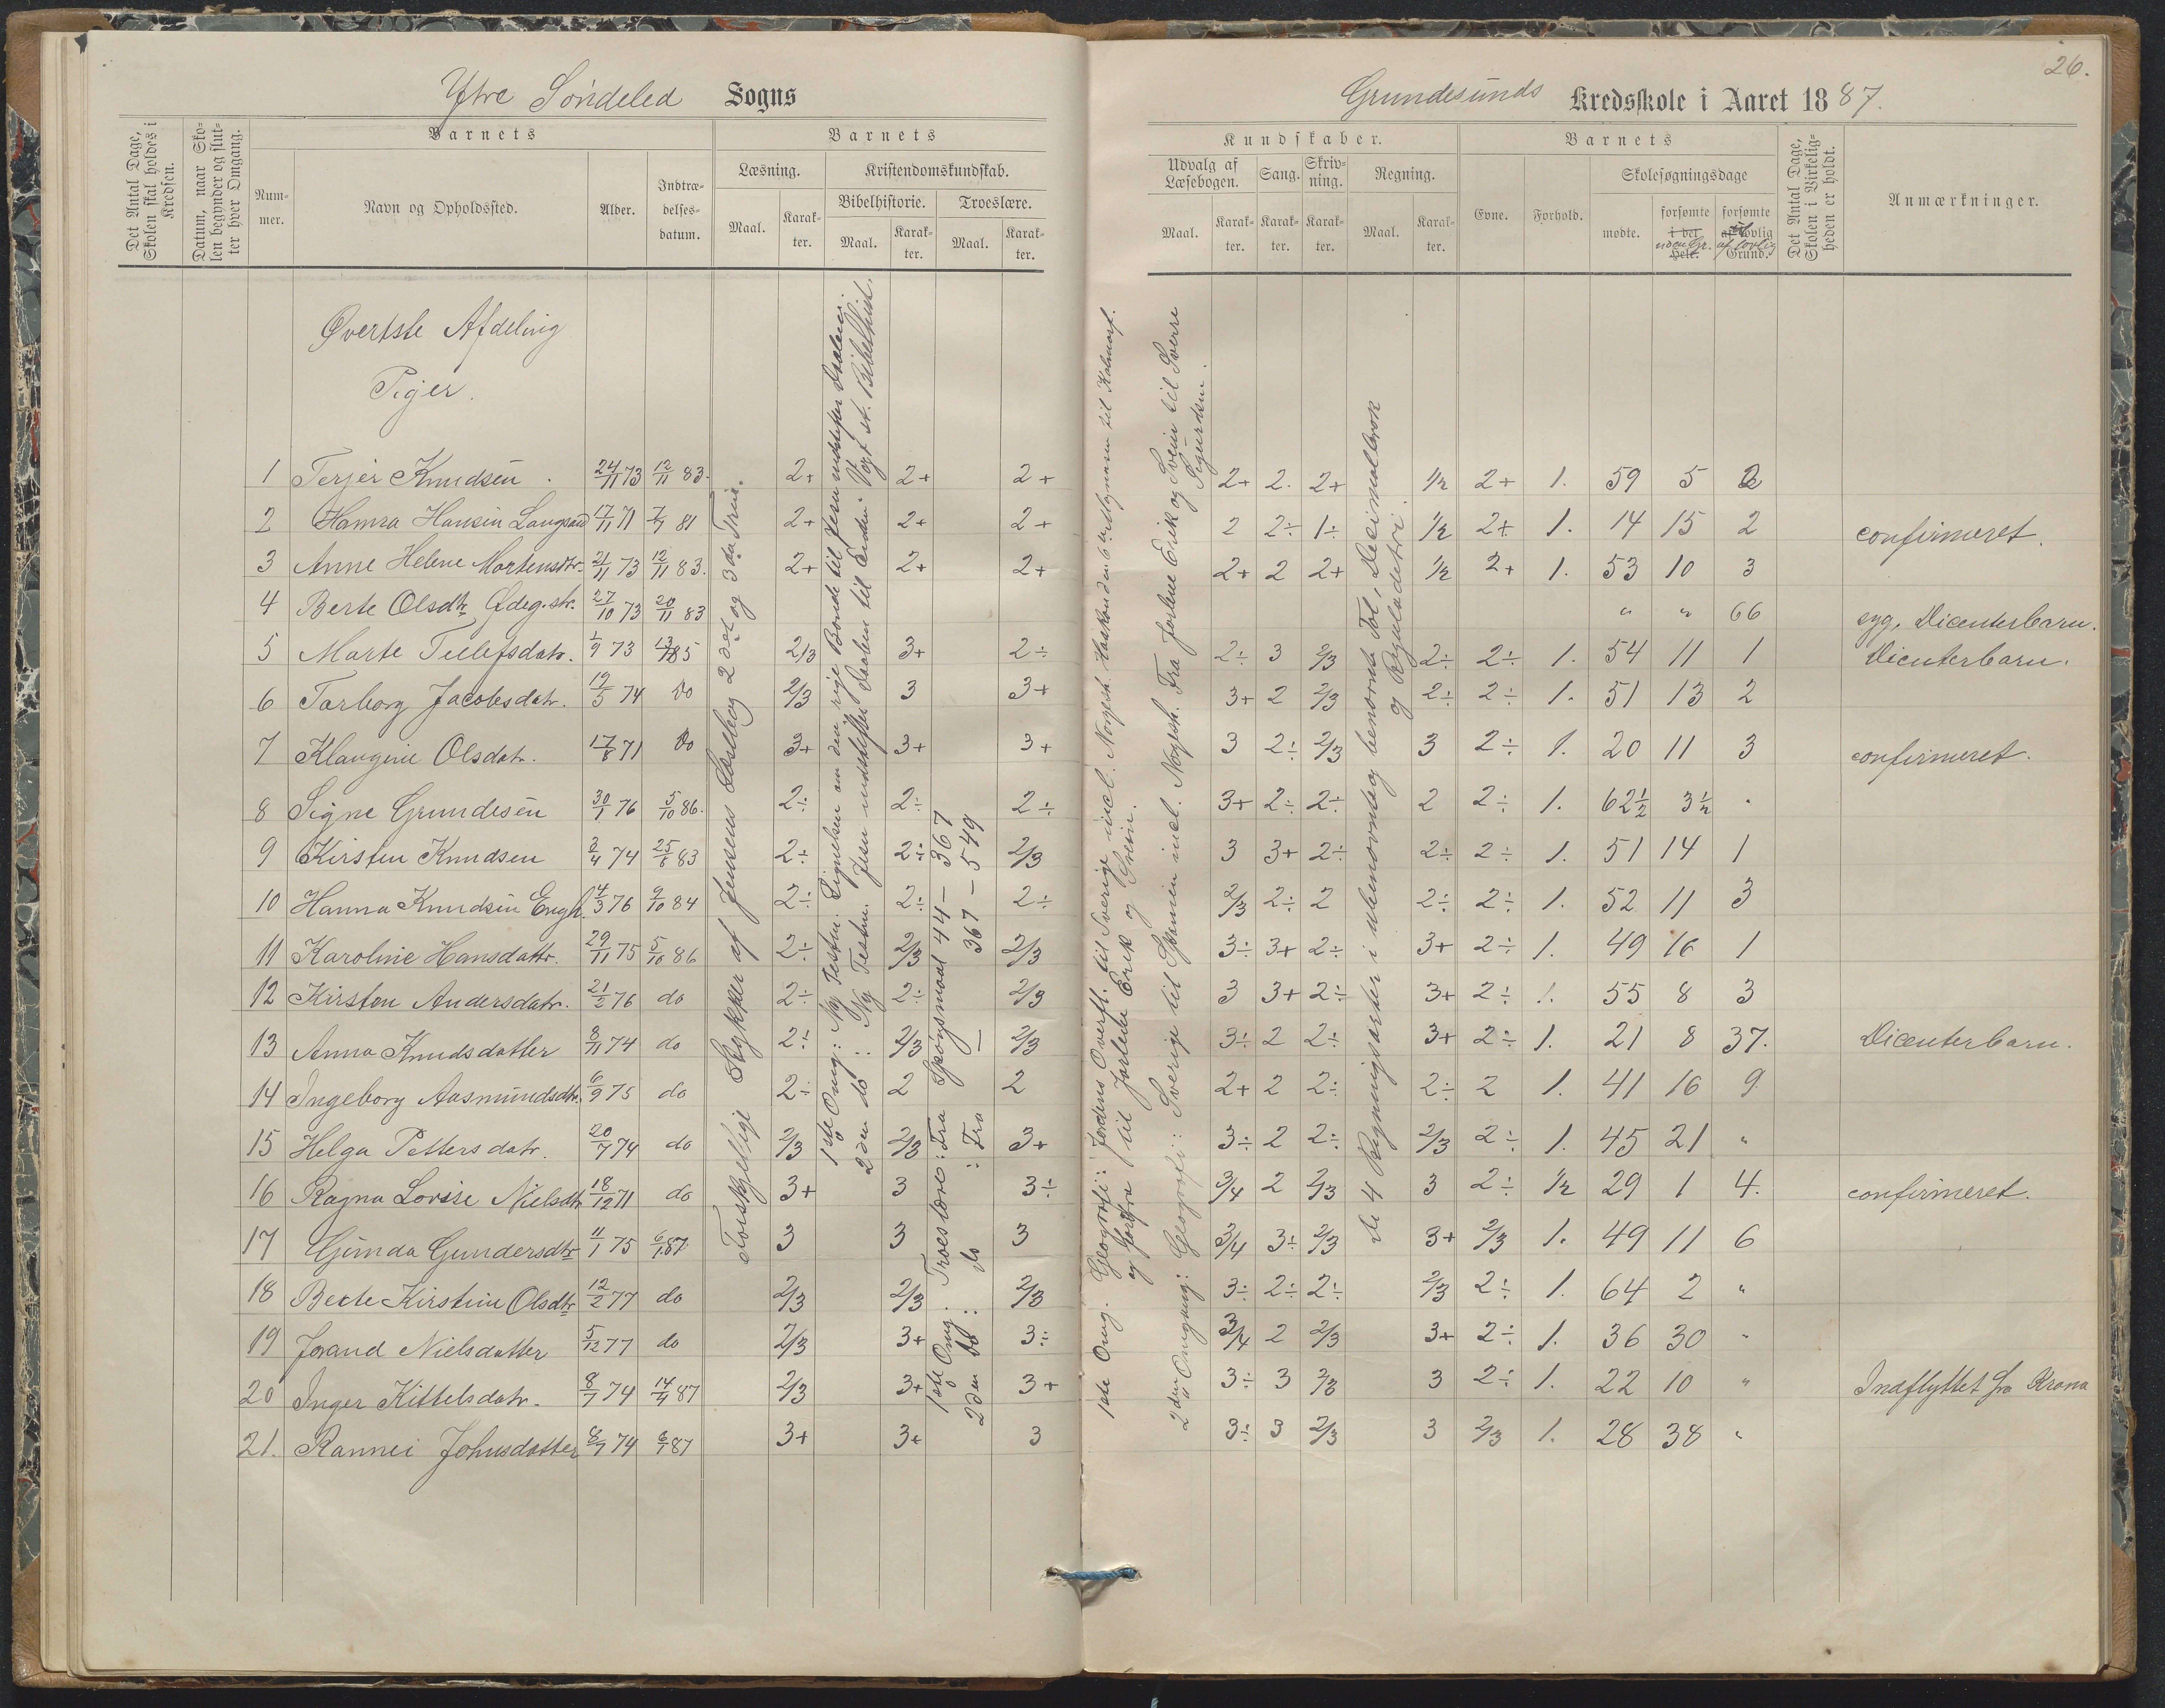 26.
Ytre Søndeled Sogns
Grundesunds Kredsskole i Aaret 1887.
Det Antal Dage, Skolen skal holdes i Kredsen.
Datum, naar Skolen begynder og slutter hver Omgang.
Barnets
Nummer.
Navn og Opholdssted.
Alder.
Indtrædelsesdatum.
Barnets
Læsning.
Maal.
Karakter.
Kristendomskundskab.
Bibelhistorie.
Maal.
Karakter.
Troeslære.
Maal.
Karakter.
Kundskaber.
Udvalg af Læsebogen.
Maal.
Karakter.
Sang.
Karakter.
Skrivning.
Karakter.
Regning.
Maal.
Karakter.
Barnets
Evne.
Forhold.
Skolesøgningsdage
mødte.
forsømte i det Hele.
uden Gr.
forsømte af lovlig Grund.
af lovlig
Det Antal Dage, Skolen i Virkeligheden er holdt.
Anmærkninger.
Øverste Afdeling
Piger.
Forskjellige Stykker af Jensens Læsebog 2det og 3die Trin.
1ste Omg: Ny Testm. Lignelsen om den rige Bonde til Jesu
2den do : Ny Testm. Jesu til Enden. Vogt st. Bibelhist.
1ste Omg. Troeslære: Fra Spørgsmaal 44 – 367
2den Do : do : Fra – 367 – 549
1ste Omg. Geografi: Jordens Overfl. til Sverige incl. Norgesh. Haakon den 6 til Kalmarf.
og forfra til Jarlene Erik og Svein.
2den Omgang: Geografi: Sverige til Spanien incl. Norgesh. Fra Jarlene Erik og Svein til Sverre
Sigurdsøn.
De 4 Regningsarter i ubenævnte og benævnte Tal, Decimalbrøk
og Reguladetri.
1 Terjer Knudsen . 24/11 73 12/11 83. 2+ 2+ 2+ 2+ 2. 2+ 1/2 2+ 1. 59 5 2
2 Hanna Hansen Langsand 17/11 71 7/7 81 2+ 2+ 2+ 2 2÷ 1÷ 1/2 2+ 1. 14 15 2 confirmeret.
3 Anne Helene Mortensdtr. 21/11 73 12/11 83. 2+ 2+ 2+ 2+ 2 2+ 1/2 2+ 1. 53 10 3
4 Berte Olsdtr Ødeg.str. 27/10 73 20/11 83 " " 66 syg. Dicenterbarn.
5 Marte Tellefsdatr. 1/9 73 13/7 85 2/3 3+ 2÷ 2÷ 3 2/3 2÷ 2÷ 1. 54 11 1 Dicenterbarn.
6 Torborg Jacobsdatr. 19/5 74 Do 2/3 3 3+ 3+ 2 2/3 2÷ 2÷ 1. 51 13 2
7 Klaugine Olsdatr. 17/8 71 Do 3+ 3+ 3+ 3 2÷ 2/3 3 2÷ 1. 20 11 3 confirmeret.
8 Signe Grundesen 30/1 76 5/10 86. 2÷ 2÷ 2÷ 3+ 2÷ 2÷ 2 2÷ 1. 62 1/2 3 1/2 "
9 Kirsten Knudsen 2/4 74 25/8 83 2÷ 2÷ 2/3 3 3+ 2÷ 2÷ 2÷ 1. 51 14 1
10 Hanna Knudsen Engh. 14/3 76 9/10 84 2÷ 2÷ 2÷ 2/3 2÷ 2 2÷ 2÷ 1. 52 11 3
11 Karoline Hansdattr. 29/11 75 5/10 86 2÷ 2/3 2/3 3÷ 3+ 2÷ 3+ 2÷ 1. 49 16 1
12 Kirsten Andersdatr. 21/2 76 do 2÷ 2÷ 2/3 3 3+ 2÷ 3+ 2÷ 1. 55 8 3
13 Anna Knudsdatter 8/11 74 do 2÷ 2/3 2/3 3÷ 2 2÷ 3+ 2÷ 1. 21 8 37. Dicenterbarn.
14 Ingeborg Aasmundsdtr. 6/9 75 do 2÷ 2 2 2+ 2 2÷ 2÷ 2 1. 41 16 9
15 Helga Pettersdatr. 20/7 74 do 2/3 2/3 3+ 3÷ 2 2÷ 2/3 2÷ 1. 45 21 "
16 Ragna Lovise Nielsdtr 18/12 71 do 3+ 3 3÷ 3/4 2 2/3 3 2÷ 1/2 29 1 4. confirmeret.
17 Gunda Gundersdtr 11/1 75 6/1 87 3 3 3 3/4 3÷ 2/3 3+ 2/3 1. 49 11 6
18 Berte Kirstine Olsdtr 12/2 77 do 2/3 2/3 2/3 3÷ 2÷ 2÷ 2/3 2÷ 1. 64 2 "
19 Jorand Nielsdatter 5/12 77 do 2/3 3+ 3÷ 3/4 2 2/3 3+ 2÷ 1. 36 30 "
20 Inger Kittelsdatr. 8/7 74 14/4 87 2/3 3+ 3+ 3÷ 3 2/3 3 2÷ 1. 22 10 " Indflyttet fra Krana
21. Rannei Johnsdatter 8/9 74 6/1 87 3+ 3+ 3 3÷ 3 2/3 3 2/3 1. 28 38 "